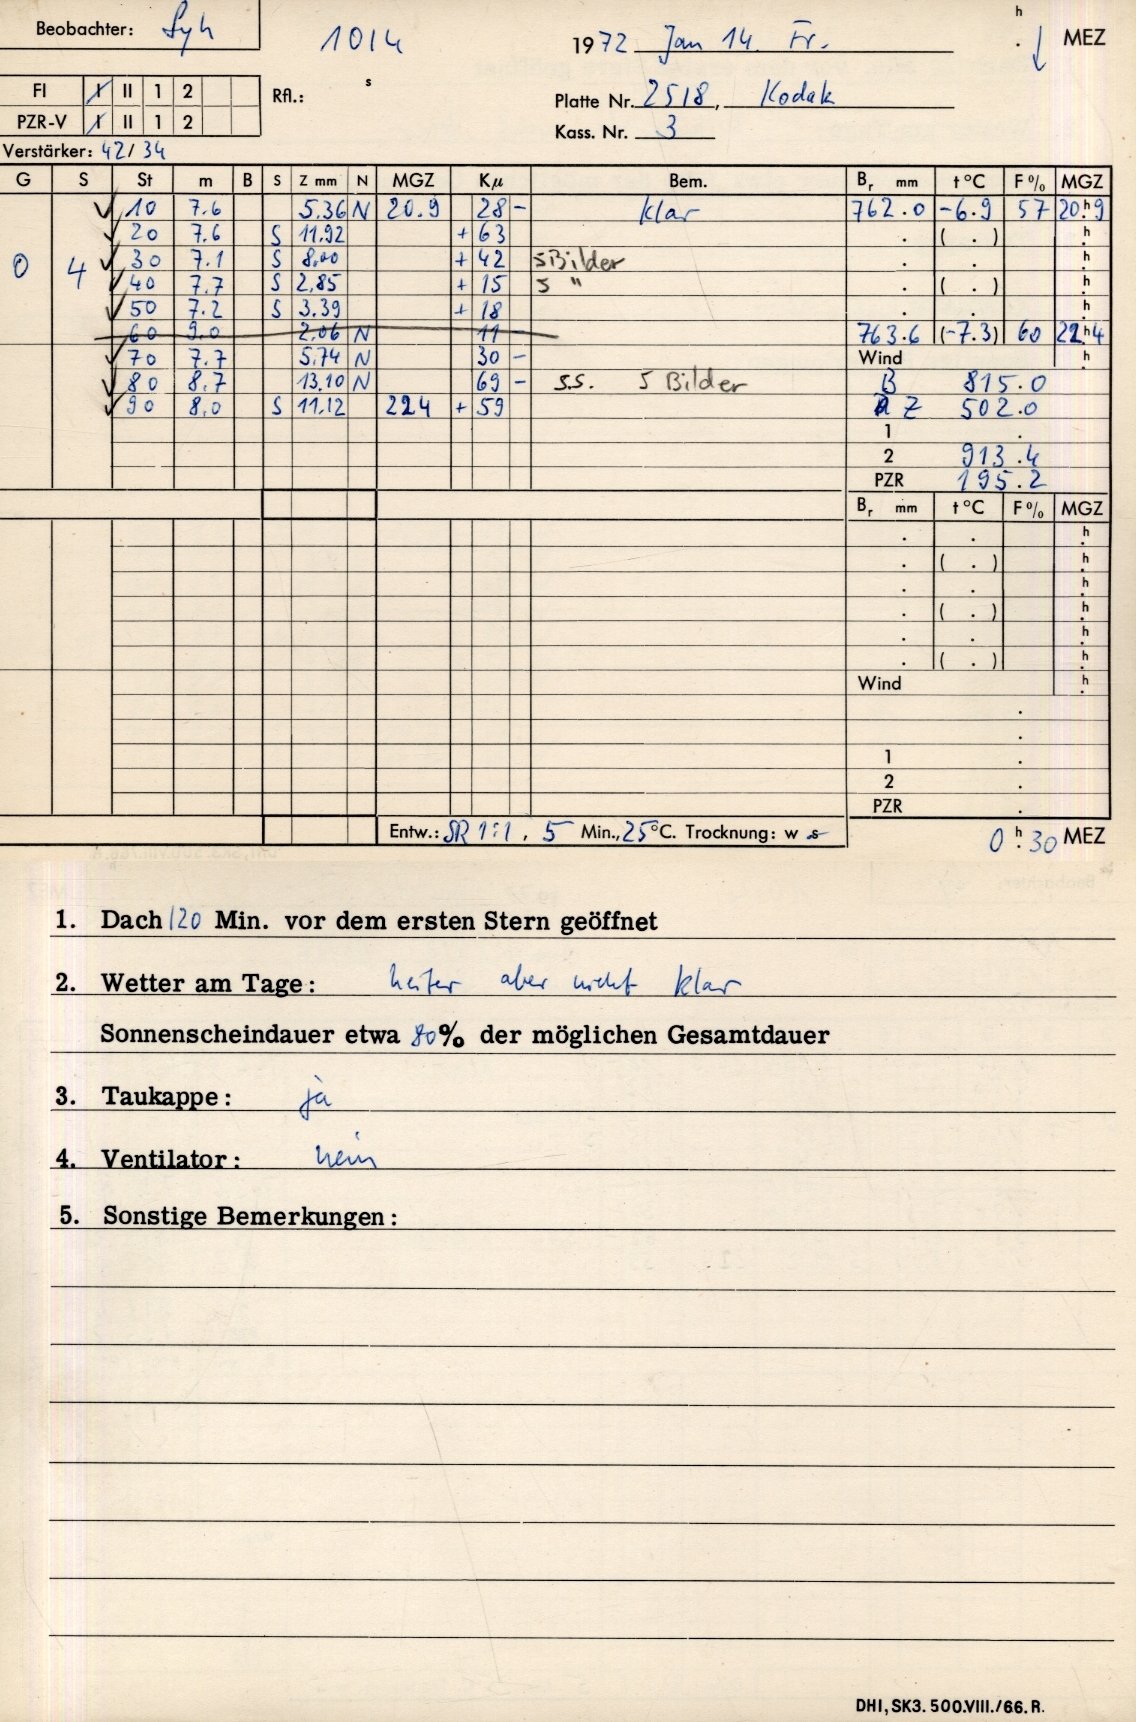 Beobachter: Syh 1014 1972 Jan 14. Fr. h . ↓ MEZ
FI I II 1 2 Rfl.: s Platte Nr. 2518, Kodak
PZR-V I II 1 2 Kass. Nr. 3
Verstärker: 42/34
G S St m B S Z mm N MGZ Kμ Bem. Br mm t°C F% MGZ
✓ 10 7.6 5.36 N 20.9 28 - klar 762.0 -6.9 57 20.h9
✓ 20 7.6 S 11.92 + 63 . ( . ) .h
0 4 ✓ 30 7.1 S 8.00 + 42 5 Bilder . . .h
✓ 40 7.7 S 2.85 + 15 5 " . ( . ) .h
✓ 50 7.2 S 3.39 + 18 . . .h
60 9.0 2.06 N 11 - 763.6 (-7.3) 60 22.h4
✓ 70 7.7 5.74 N 30 - Wind .h
✓ 80 8.7 13.10 N 69 - s.s. 5 Bilder B 815.0
✓ 90 8.0 S 11.12 22.4 + 59 Z 502.0
1 .
2 913.4
PZR 195.2
Br mm t°C F% MGZ
. . .h
. ( . ) .h
. . .h
. ( . ) .h
. . .h
. ( . ) .h
Wind .h
.
.
1 .
2 .
PZR .
Entw.: SR 1:1, 5 Min., 25°C. Trocknung: w s 0 h. 30 MEZ
1. Dach 120 Min. vor dem ersten Stern geöffnet
2. Wetter am Tage: heiter aber nicht klar
Sonnenscheindauer etwa 80% der möglichen Gesamtdauer
3. Taukappe: ja
4. Ventilator: nein
5. Sonstige Bemerkungen:
DHI, SK3. 500.VIII./66. R.